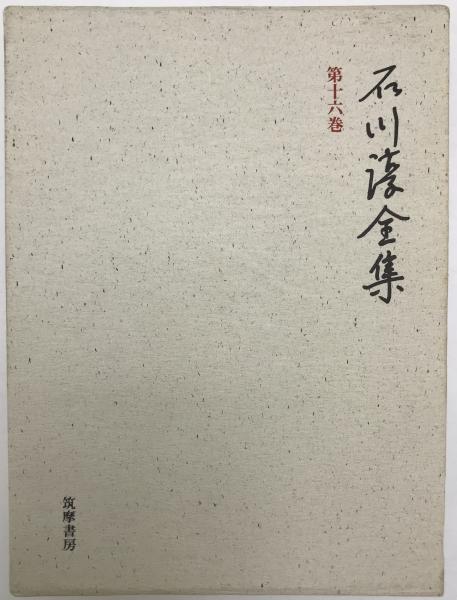 石川淳全集
第十六巻
筑摩書房